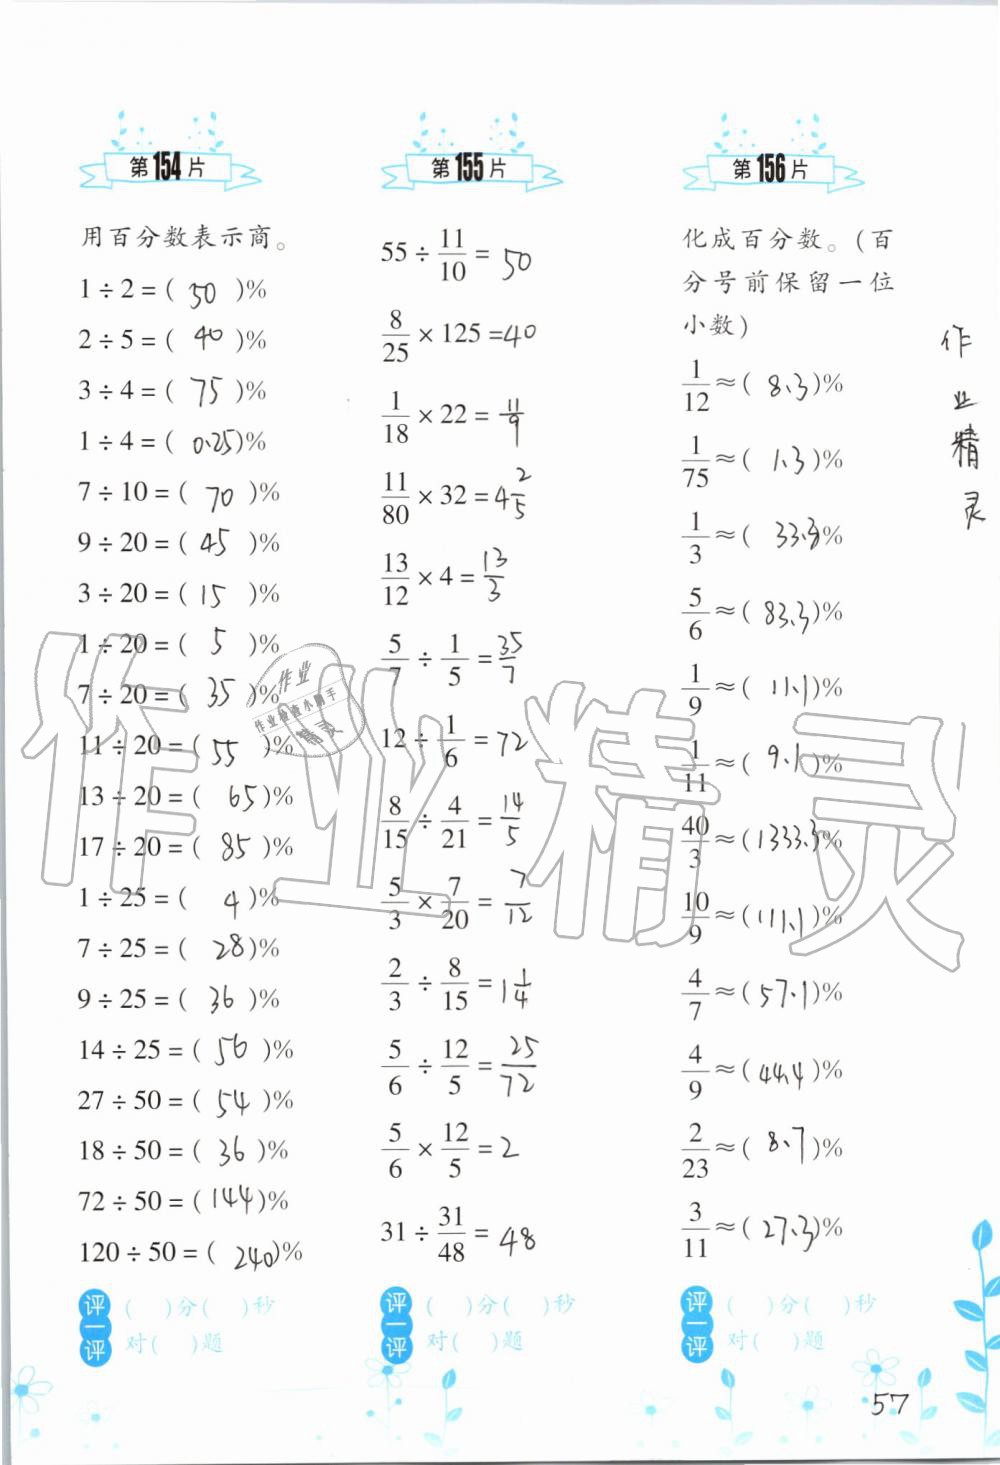 第154片
用百分数表示商。
1÷2=( 50 )%
2÷5=( 40 )%
3÷4=( 75 )%
1÷4=( 0.25)%
7÷10=( 70 )%
9÷20=( 45 )%
3÷20=( 15 )%
1÷20=( 5 )%
7÷20=( 35 )%
11÷20=( 55 )%
13÷20=( 65)%
17÷20=( 85)%
1÷25=( 4)%
7÷25=( 28)%
9÷25=( 36 )%
14÷25=( 56 )%
27÷50=( 54 )%
18÷50=( 36 )%
72÷50=(144)%
120÷50=( 240)%
评一评
( )分( )秒
对( )题
第155片
55÷11/10=50
8/25×125=40
1/18×22=11/9
11/80×32=4 2/5
13/12×4=13/3
5/7÷1/5=35/7
12÷1/6=72
8/15÷4/21=14/5
5/3×7/20=7/12
2/3÷8/15=1 1/4
5/6÷12/5=25/72
5/6×12/5=2
31÷31/48=48
评一评
( )分( )秒
对( )题
第156片
化成百分数。(百
分号前保留一位
小数)
1/12≈( 8.3)%
1/75≈( 1.3)%
1/3≈( 33.3%
5/6≈(83.3)%
1/9≈( 11.1)%
1/11≈( 9.1)%
40/3≈(1333.3)%
10/9≈(111.1)%
4/7≈(57.1)%
4/9≈(44.4)%
2/23≈( 8.7)%
3/11≈(27.3)%
评一评
( )分( )秒
对( )题
作业精灵
作业精灵
作业
作业检查小助手
精灵
57